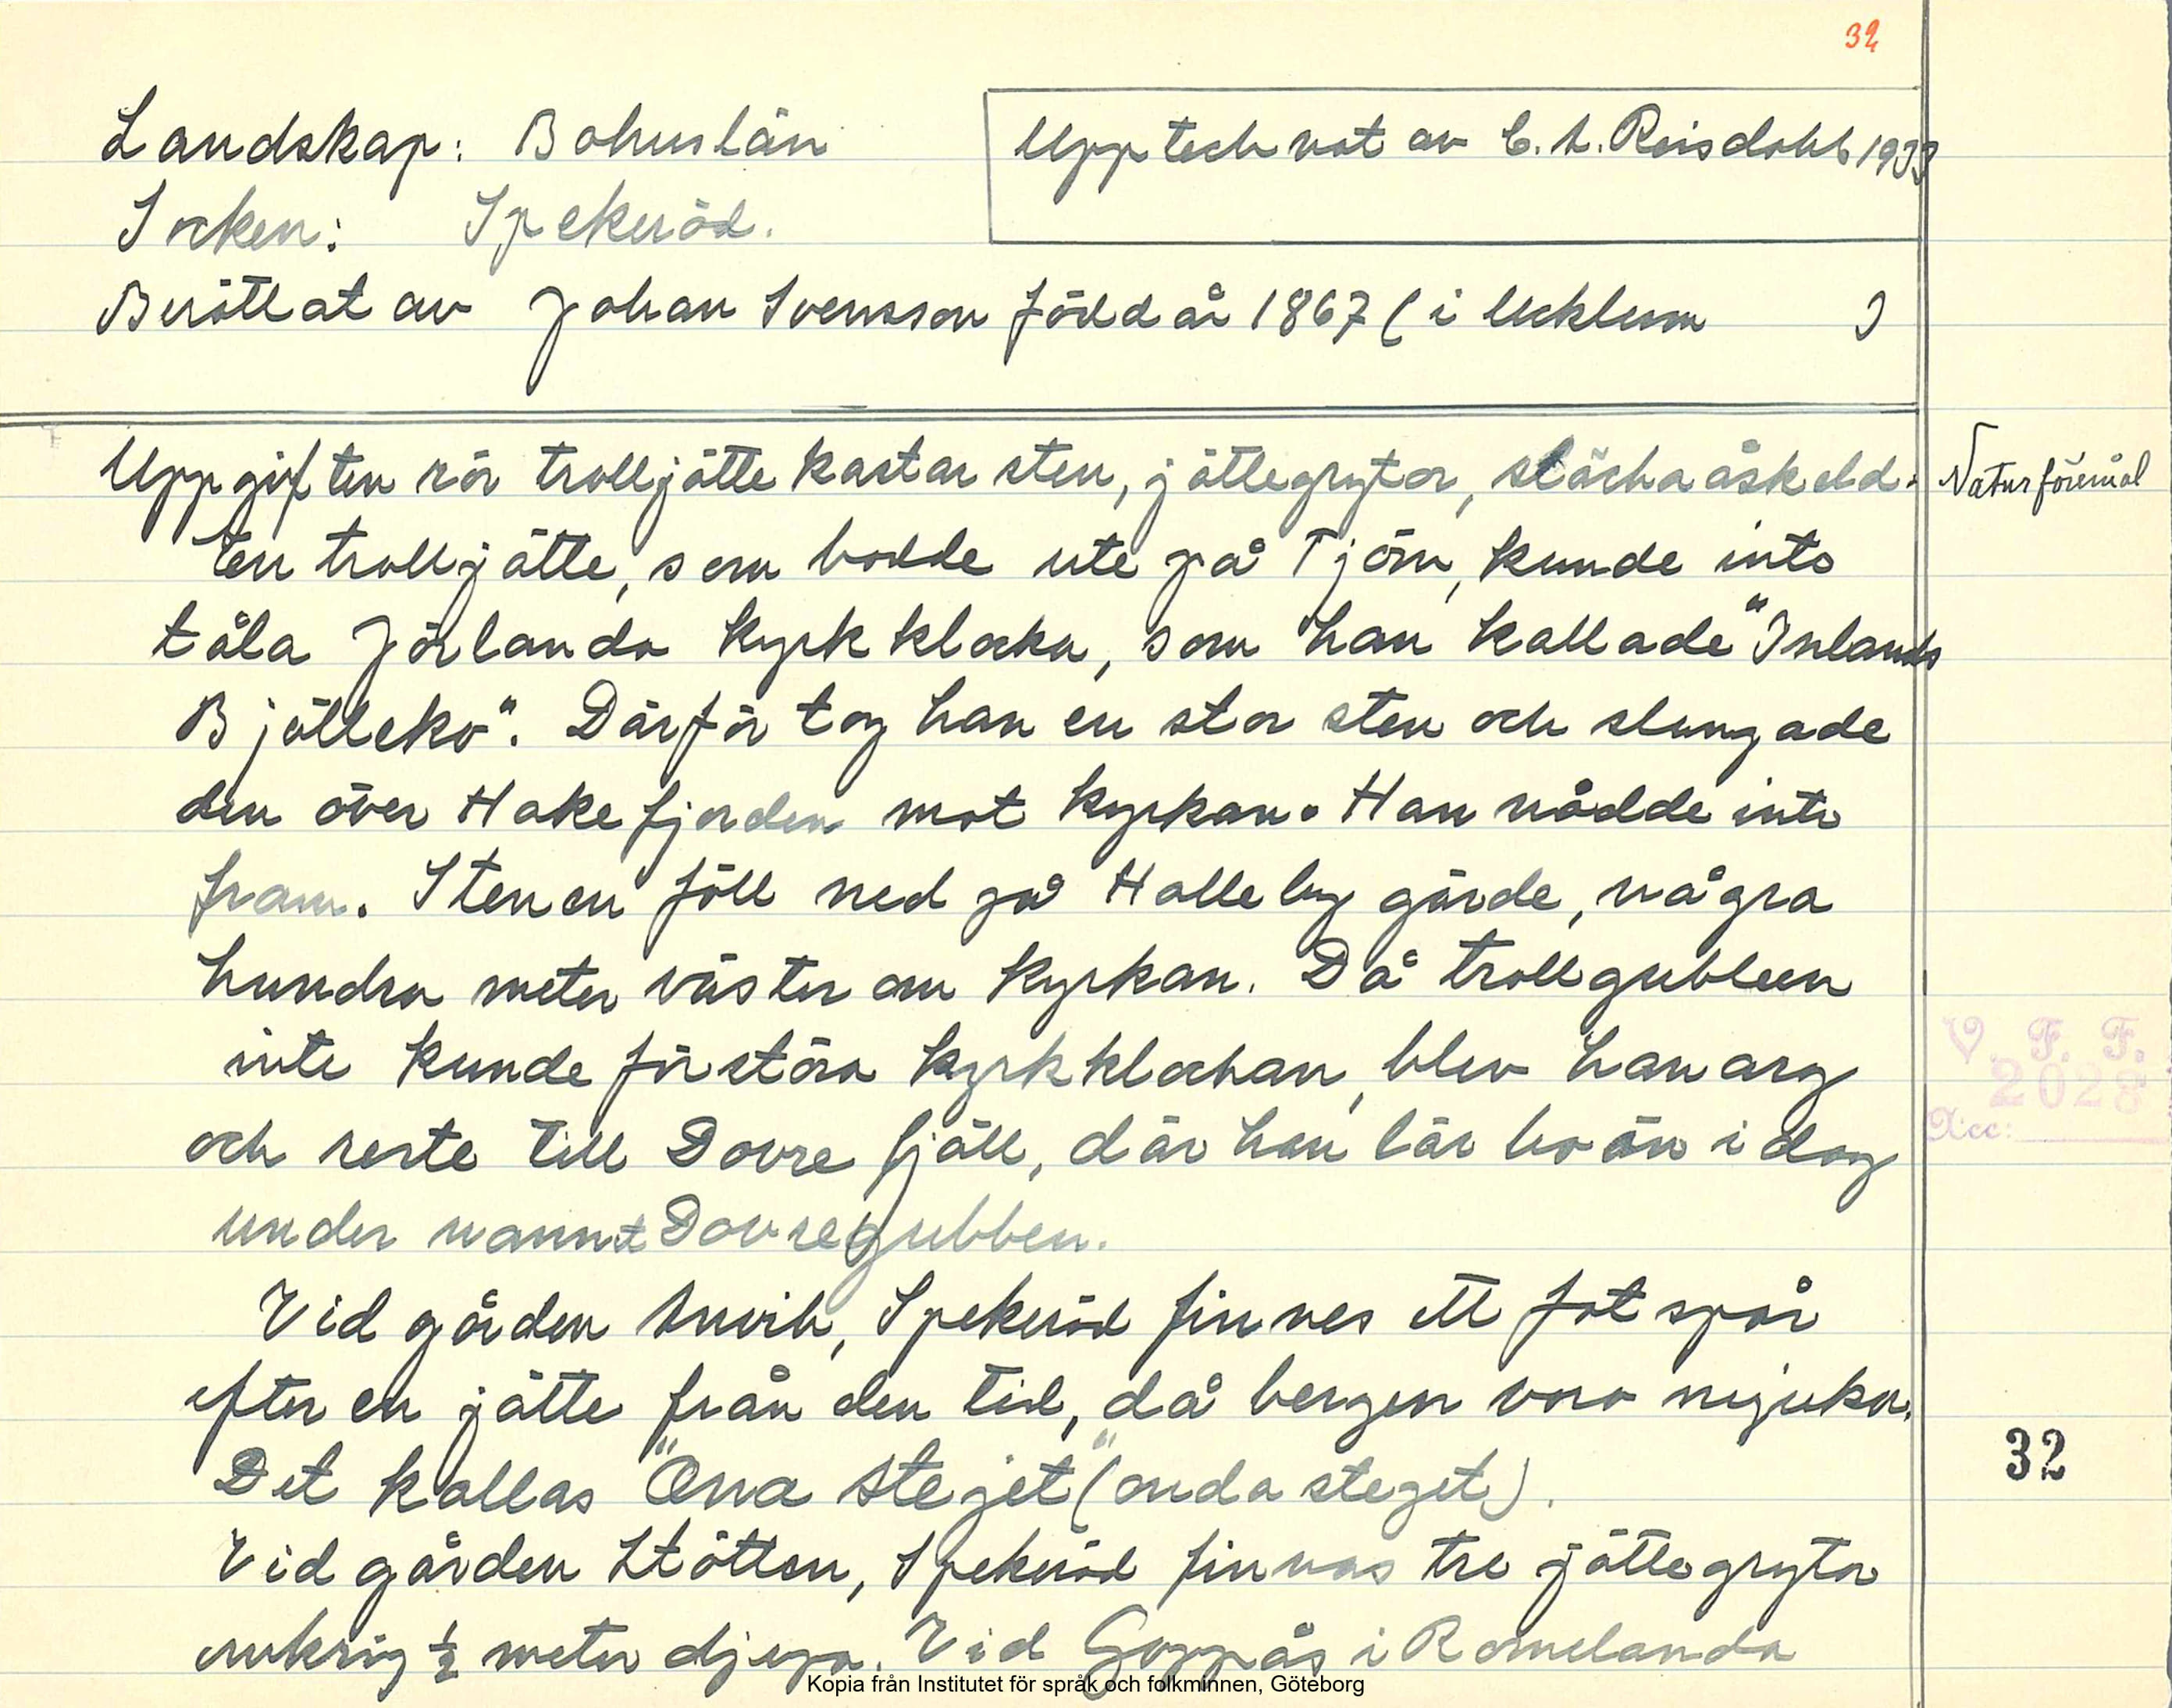 32
Landskap: Bohuslän
Upptecknat av C. A. Reisdahl 1933
Socken: Spekeröd.
Berättat av Johan Svensson född år 1867 (i Ucklum )
Uppgiften rör trolljätte kastar sten, jättegrytor, släcka åskeld.
Naturföremål
En trolljätte, som bodde ute på Tjörn, kunde inte
tåla Jörlanda kyrkklocka, som han kallade "Inlands
Bjälleko". Därför tog han en stor sten och slungade
den över Hakefjorden mot kyrkan. Han nådde inte
fram. Stenen föll ned på Halleby gärde, några
hundra meter väster om kyrkan. Då trollgubben
inte kunde förstöra kyrkklockan, blev han arg
och reste till Dovre fjäll, där han lär bo än i dag
under namnet Dovregubben.
V. F. F.
2028
Acc:
Vid gården Anvik, Spekeröd finnes ett fotspår
efter en jätte från den tid, då bergen voro mjuka.
Det kallas "Ona stejet" (onda steget).
32
Vid gården Stötten, Spekeröd finnas tre jättegrytor
omkring ½ meter djupa. Vid Goppås i Romelanda
Kopia från Institutet för språk och folkminnen, Göteborg